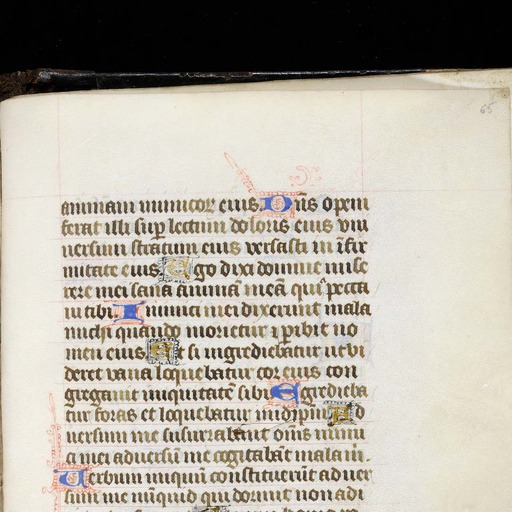 65
animam inimicoꝝ eius. Dn̄s opem
ferat illi sup̄ lectum doloris eius vni
uersum stratum eius versasti in īfir
mitate eius Ego dixi domine mise
rere mei sana animā meā qui pecca
ui tibi. Inimici mei dixerunt mala
michi quando morietur ⁊ ꝑibit no
men eius Et si ingrediebatur ut vi
deret vana loquebatur cor eius con
gregauit iniquitatē sibi Egredieba
tur foras et loquebatur in idip̄m Ad
uersum me susurrabant om̄s inimi
ci mei aduersū me cogitabāt mala m.
Verbum iniquū constituerūt aduer
sum me nūquid qui dormit non adi